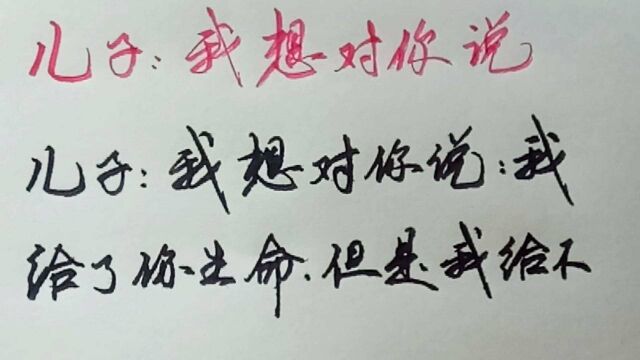 儿子:我想对你说
儿子:我想对你说:我
给了你生命.但是我给不